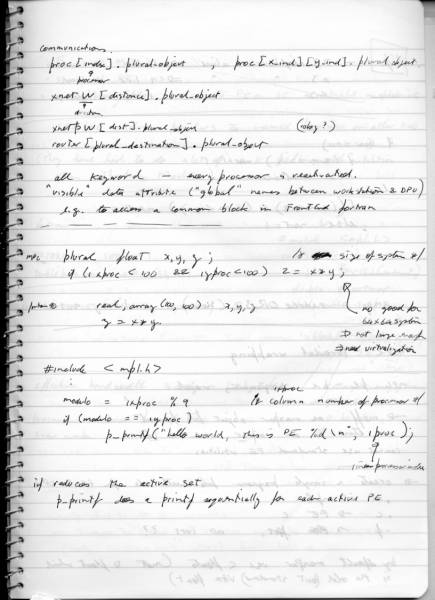 communications.
proc [index] . plural-object , proc [x_ind] [y_ind] . plural_object
processor
xnet W [distance] . plural_object
direction
xnet p W [dist] . plural_object (copy?)
router [plural_destination] . plural_object
all keyword — every processor is reactivated.
"visible" data attribute ("global" names between workstation & DPU)
e.g. to access a common block in FrontEnd fortran
MPL plural float x, y, z ; /* size of system */
if (ixproc < 100 && iyproc < 100) z = x*y ;
no good for
64x64 system
⇒ not large enough
⇒ need virtualization
fortran real, array (100, 100) x, y, z
z = x * y.
#include < mpl.h >
:
modulo = ixproc % 9 /* column number of processor */
ixproc
if (modulo == iyproc)
p_printf ("hello world, this is PE %d \n", iproc);
linear processor index
if reduces the active set
p_printf does a printf sequentially for each active PE.